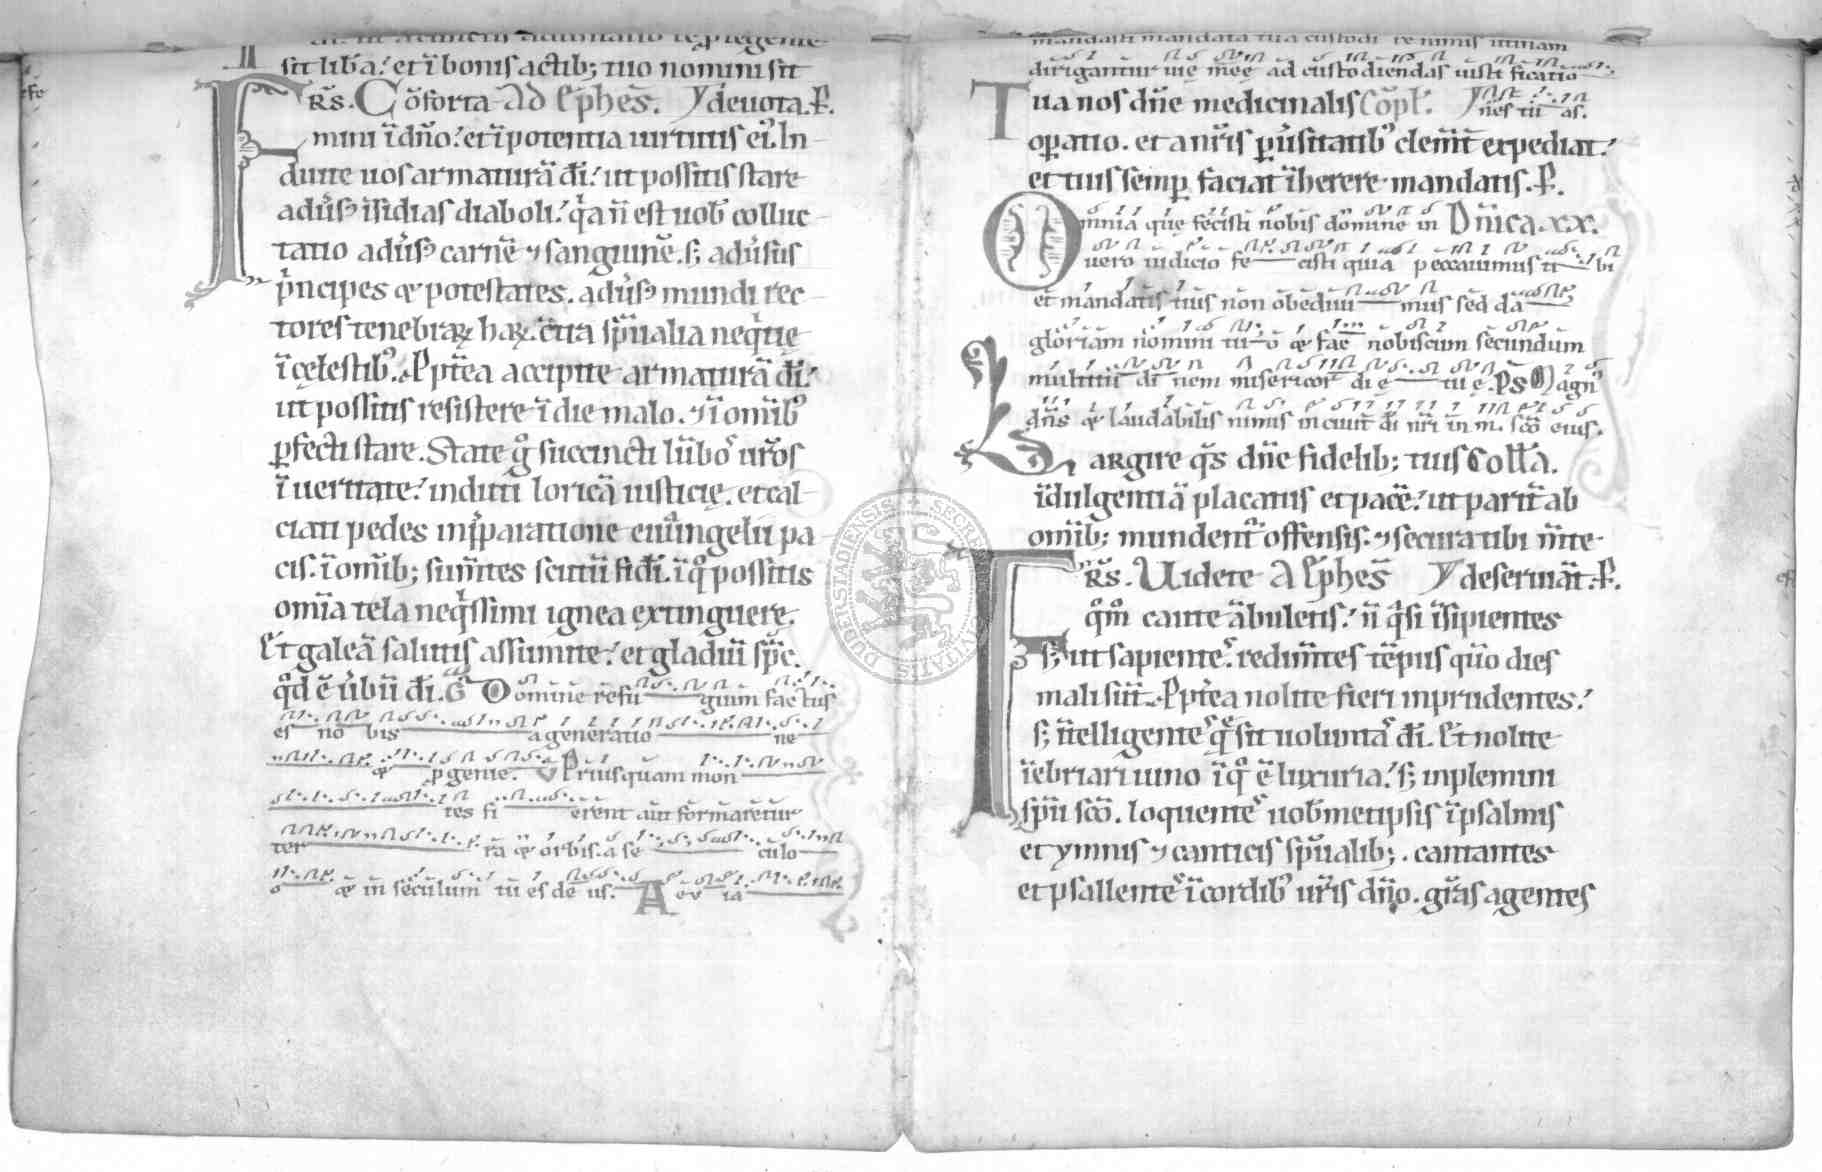 sit lib̄a. et ī bonis actib; tuo nomini sit
R̄s. Cōforta Ad Ep̄hes̄. y deuota. F.
mini ī dn̄o. et ī potentia uirtutis ei᾽. In
duite uos armaturā dī. ut possitis stare
adūs᾽ īsidias diaboli. qͥa n̄ est uob̄ colluc
tatio adūs᾽ carnē ⁊ sanguinē. s; adūsus
pͥncipes & potestates. adūs᾽ mundi rec
tores tenebraꝝ haꝝ. c̄tra sp̄ualia neqͥtię
ī cęlestib᾽. Ppt̄ea accipite armaturā dī.
ut possitis resistere ī die malo. ⁊ ī om̄ib᾽
ꝑfecti stare. State gͦ succincti lūbos ur̄os
ī ueritate. induti loricā iusticię. et cal
ciati pedes in p̄paratione euūngelii pa
cis. ī om̄ib; sum̄tes scutū fidī. ī qͦ possitis
om̄ia tela neqͥssimi ignea extinguere.
Et galeā salutis assumite. et gladiū sp̄c.
qͩd ē ūbū dī. Gͬ Domine refu gium factus
es no bis a generatio ne
& ꝓgenie. V Priusquam mon
tes fi erent aūt formaretur
ter ra & orbis. a se culo
o & in seculum tu es de us. A ev ia
mandasti mandata tua custodi re nimis utinam
dirigantur uię meę ad custodiendas iusti ficatio
Tua nos dn̄e medicinalis Cōpl̄. y nes tu as.
oꝑatio. et a nr̄is ꝑuersitatib᾽ clem̄t̄ expediat.
et tuis semꝑ faciat īherere mandatis. F.
Omnia que fecisti nobis domine in Dn̄ica. xx.
uero iudicio fe cisti quia peccauimus ti bi
et mandatis tuis non obediui mus sed da
gloriam nomini tu o & fac nobiscum secundum
multitu di nem misericor di ę tu ę. Ps Magn᾽
dn̄s & laudabilis nimis in ciuit̄ dī nr̄i in m. sc̄o eius.
Largire qs̄ dn̄e fidelib; tuis Coll̄a.
īdulgentiā placatus et pacē. ut parit̄ ab
om̄ib; mundent᾽ offensis. ⁊ secura tibi m̄te
R̄s. Uidete A Ep̄hes̄ y deseruiāt. F.
qͦm̄ caute ābuletis. n̄ qͣsi īsipientes
s; ut sapientes. redim̄tes tēpus qm̄ dies
mali sūt. Ppt̄ea nolite fieri inprudentes.
s; īt̄elligentes qͤ sit uoluntas dī. Et nolite
īebriari uino ī qͦ ē luxuria. s; inplemini
sp̄u sc̄o. loquentes uob̄metipsis ī psalmis
et ymnis ⁊ canticis sp̄ualib;. cantantes
et psallentes ī cordib᾽ ur̄is dn̄o. gr̄as agentes
SECRET CIVITATIS DUDERSTADIENSIS